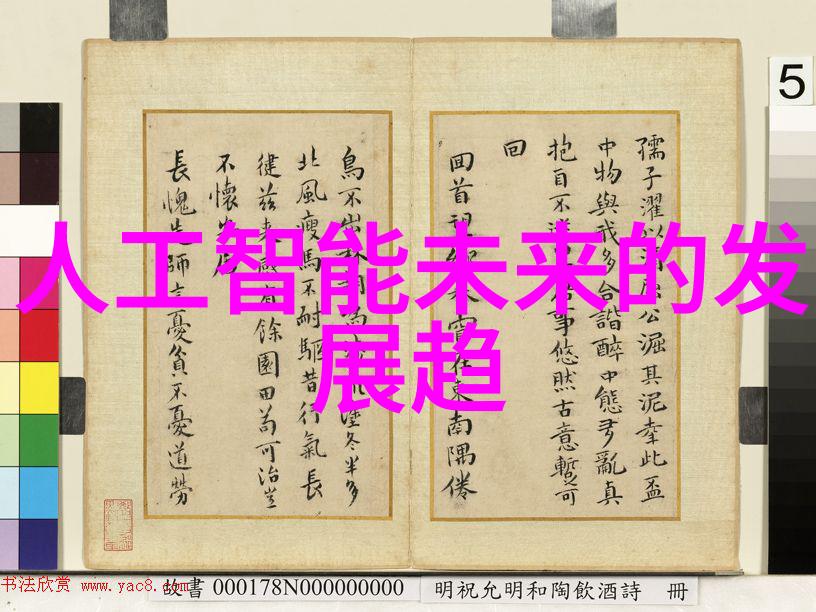 人工智能未来的发
展趋
5
孺子濯以清屈公淈其泥幸此盃
中物與我多合諧醉中態多亂真
抱自不事悠然古意暫可
回
回首望在東南隅倦
鳥不出塗冬半多
北風瘦馬不耐驅昔行氣長
健茲有餘園田苟可治豈
不懷
長愧先師言憂貧不憂道勞
书法欣赏 www.yac8.com
故書 000178N000000000 明祝允明和陶飲酒詩 冊